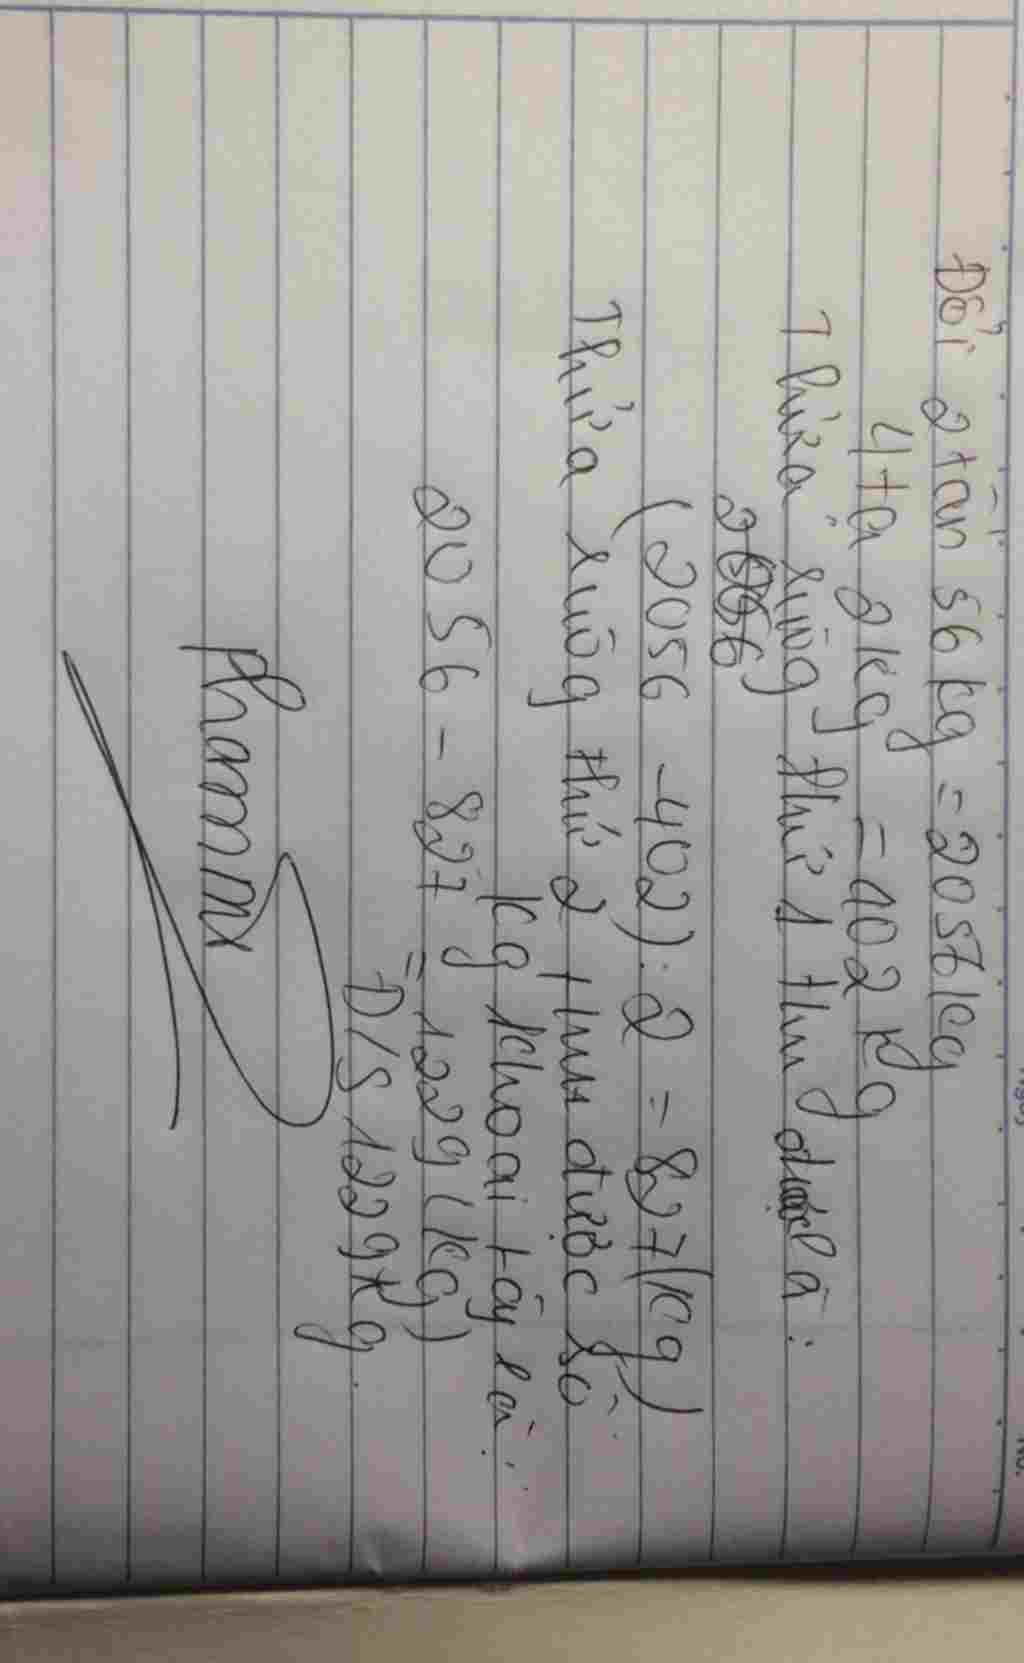 Đổi 2 tấn 56 kg = 2056 kg
4 tạ 2 kg = 402 kg
Thửa ruộng thứ 1 thu được là:
(2056 - 402): 2 = 827 (kg)
Thửa ruộng thứ 2 thu được số
kg khoai tây là:
2056 - 827 = 1229 (kg)
Đ/S 1229 kg.